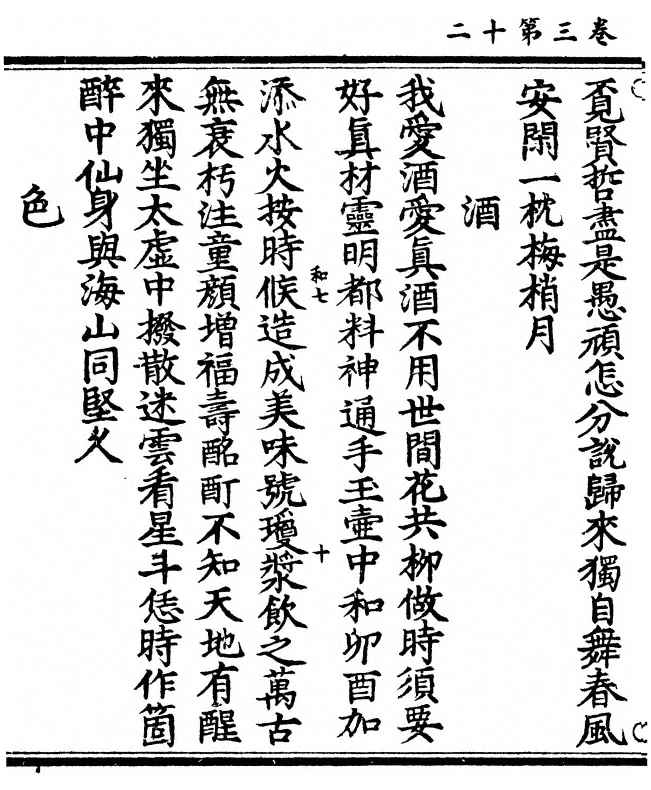 卷三第十二
覔賢哲盡是愚頑怎分說歸來獨自舞春風
安閑一枕梅梢月
酒
我愛酒愛眞酒不用世間花共柳做時須要
好眞材靈明都料神通手玉壺中和卯酉加
和七
十
添水火按時候造成美味號瓊漿飲之萬古
無衰朽注童顏增福壽酩酊不知天地有醒
來獨坐太虛中撥散迷雲看星斗恁時作箇
醉中仙身與海山同堅久
色